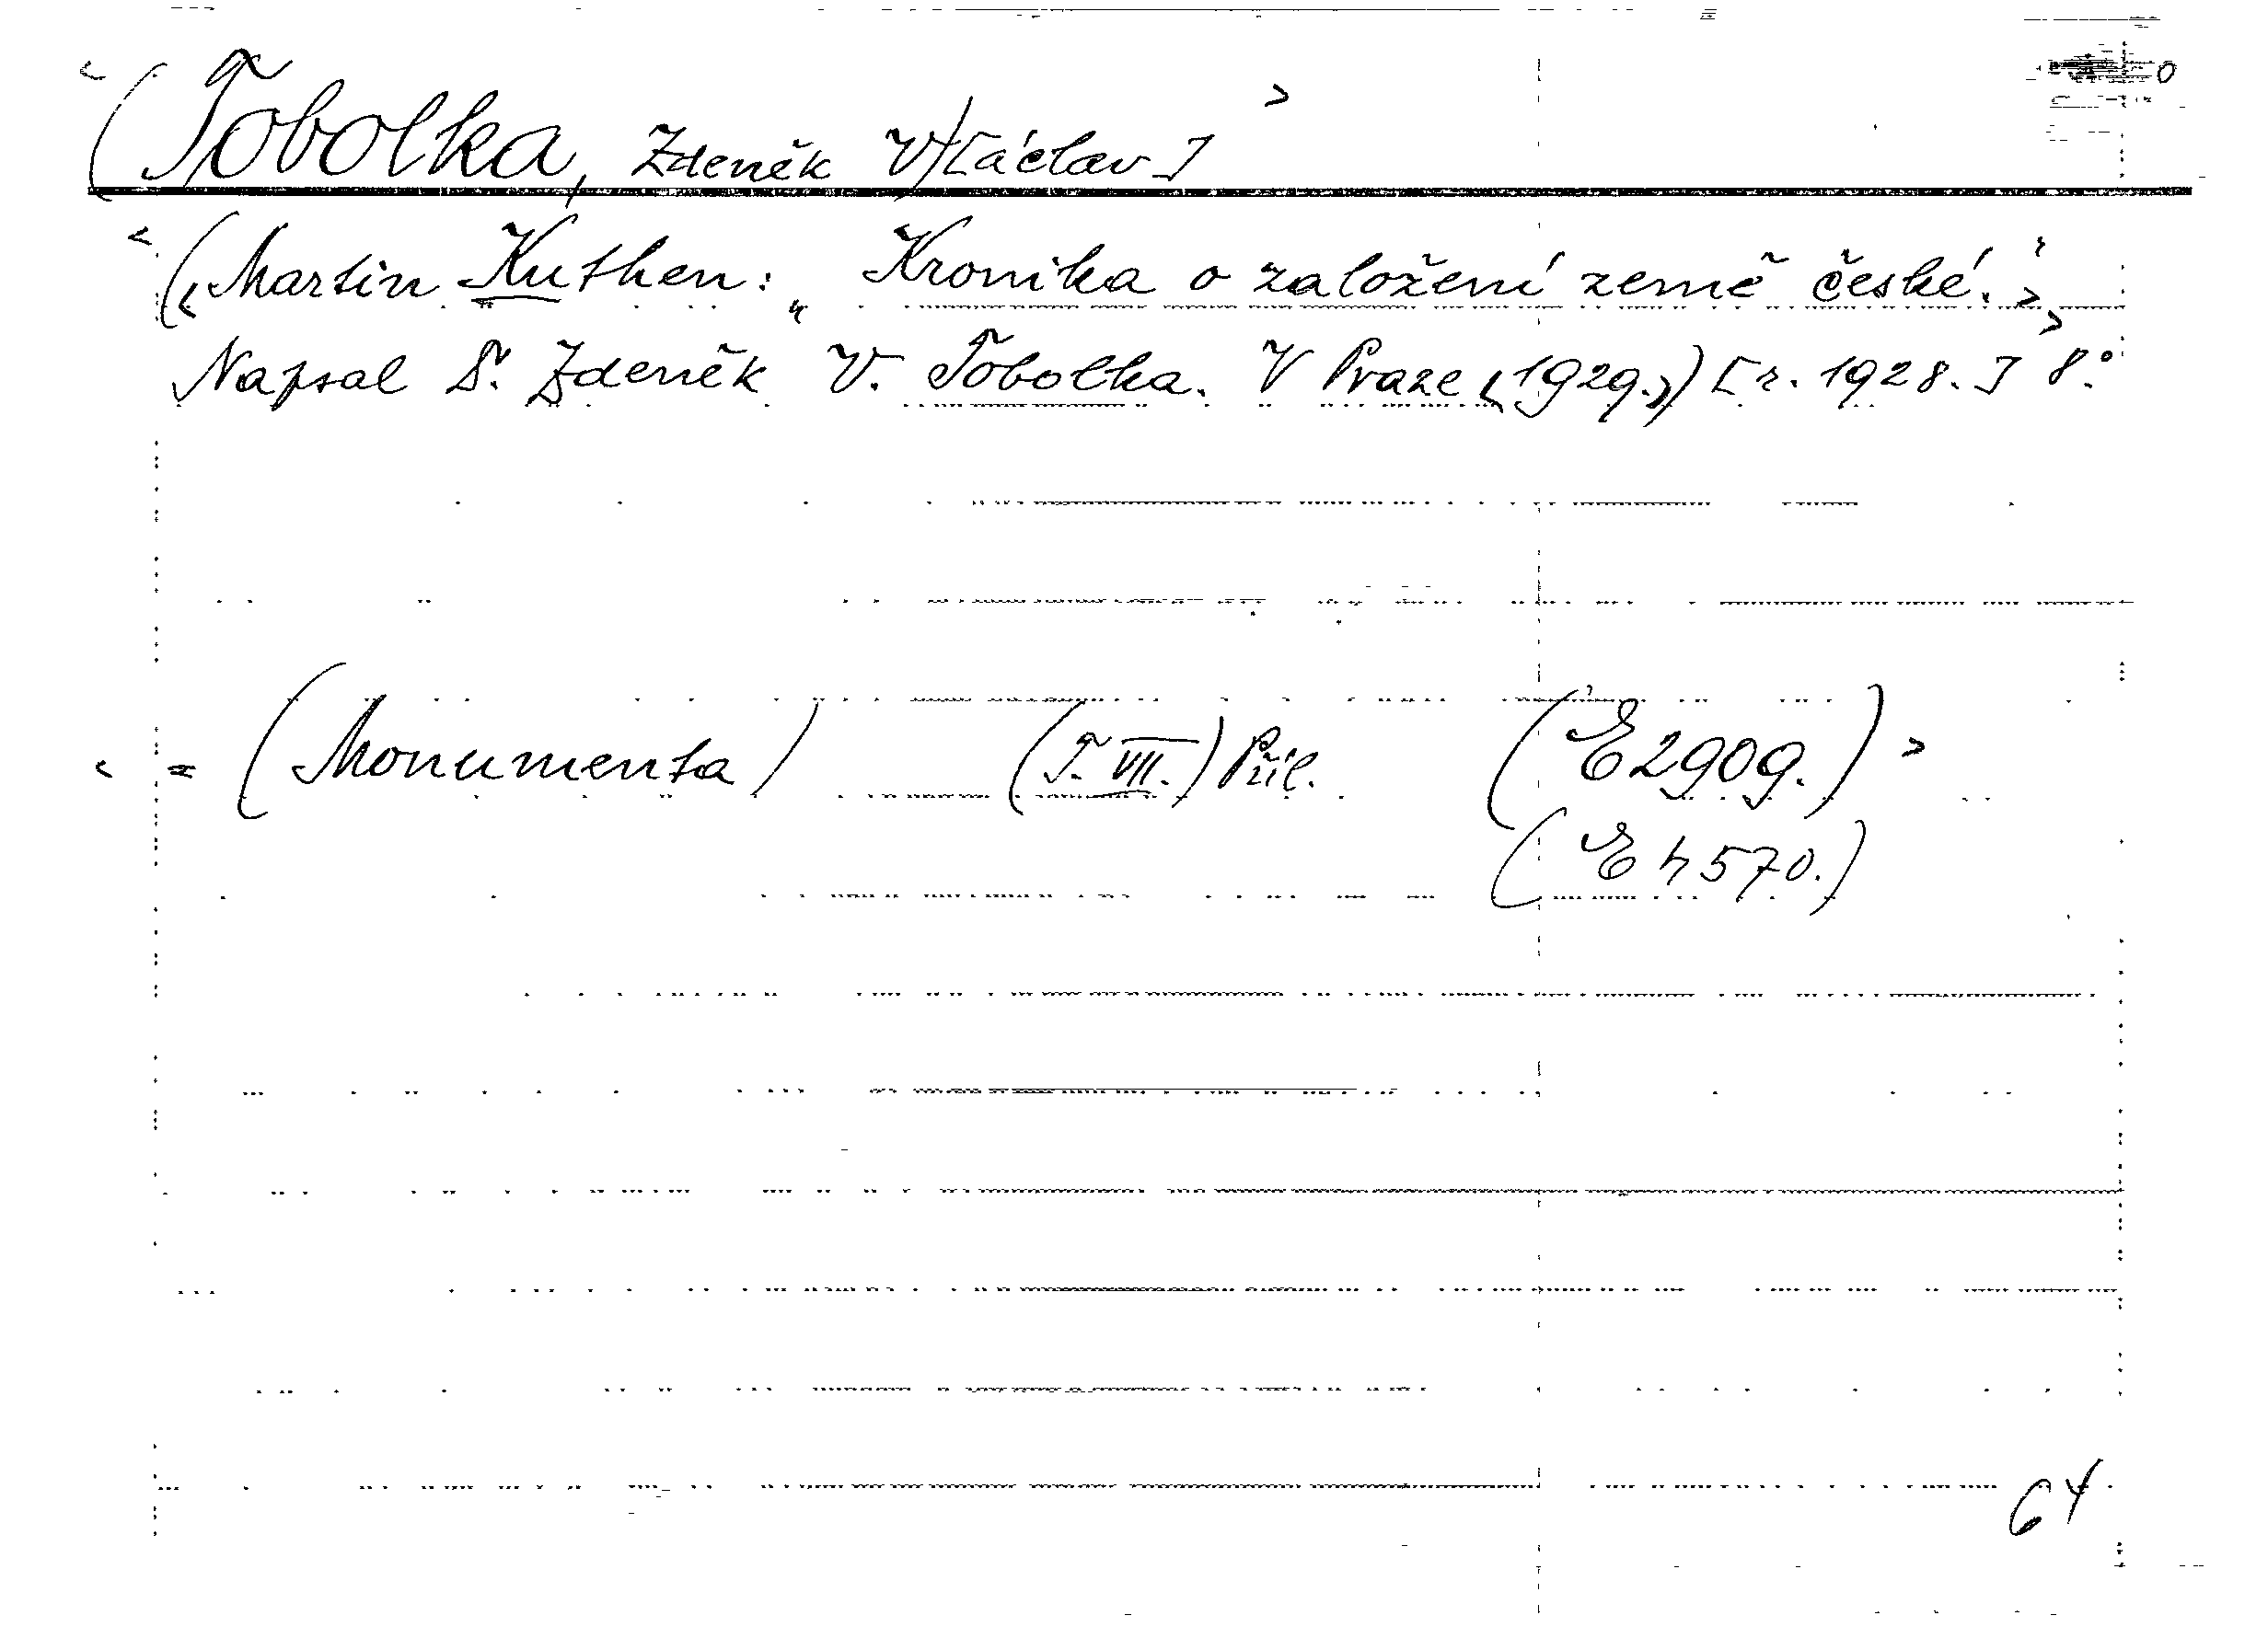 < (Tobolka, Zdeněk V/[áclav] >
< („Martin Kuthen: „Kronika o založení země české.“ >
Napsal Dr. Zdeněk V. Tobolka. V Praze (1929.)) [r. 1928.] > 8.°
< = (Monumenta) (T. VII.) Příl. (E 2909.) >
(E h 570.)
64